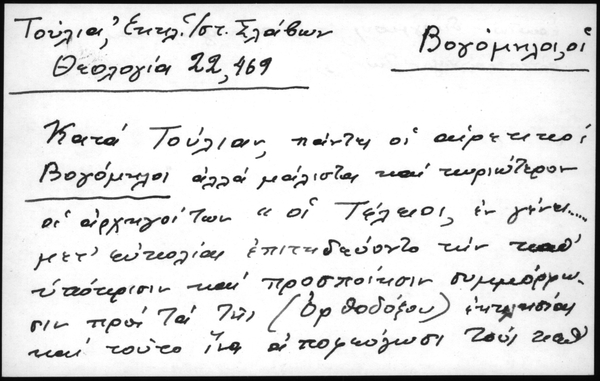 Τούλια, Ἐκκλ. Ἱστ. Σλάβων
Θεολογία 22, 469
Βογόμηλοι, οἱ
Κατά Τούλιαν, πάντες οἱ αἱρετικοί
Βογόμηλοι ἀλλά μάλιστα καί κυριώτερον
οἱ ἀρχηγοί των "οἱ Τέλειοι, ἐν γένει.....
μετ' εὐκολίας ἐπιτηδεύοντο τήν καθ'
ὑπόκρισιν καί προσποίησιν συμμόρφω-
σιν πρός τά τῆς (Ὀρθοδόξου) ἐκκλησίας
καί τοῦτο ἵνα ἀποφεύγωσι τούς καθ